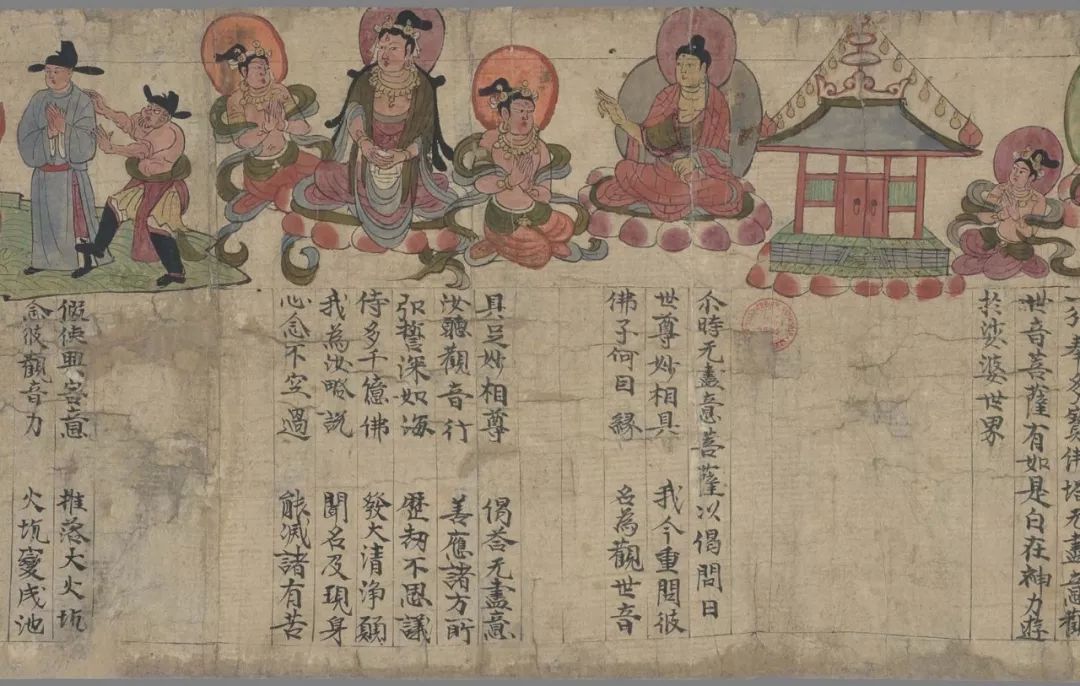 一分奉多寶佛塔无盡意觀
世音菩薩有如是自在神力遊
於娑婆世界
尒時无盡意菩薩以偈問曰
世尊妙相具 我今重問彼
佛子何因緣 名為觀世音
具足妙相尊 偈荅无盡意
汝聽觀音行 善應諸方所
弘誓深如海 歷劫不思議
侍多千億佛 發大清淨願
我為汝略説 聞名及現身
心念不空過 能滅諸有苦
假使興害意 推落大火坑
念彼觀音力 火坑變成池